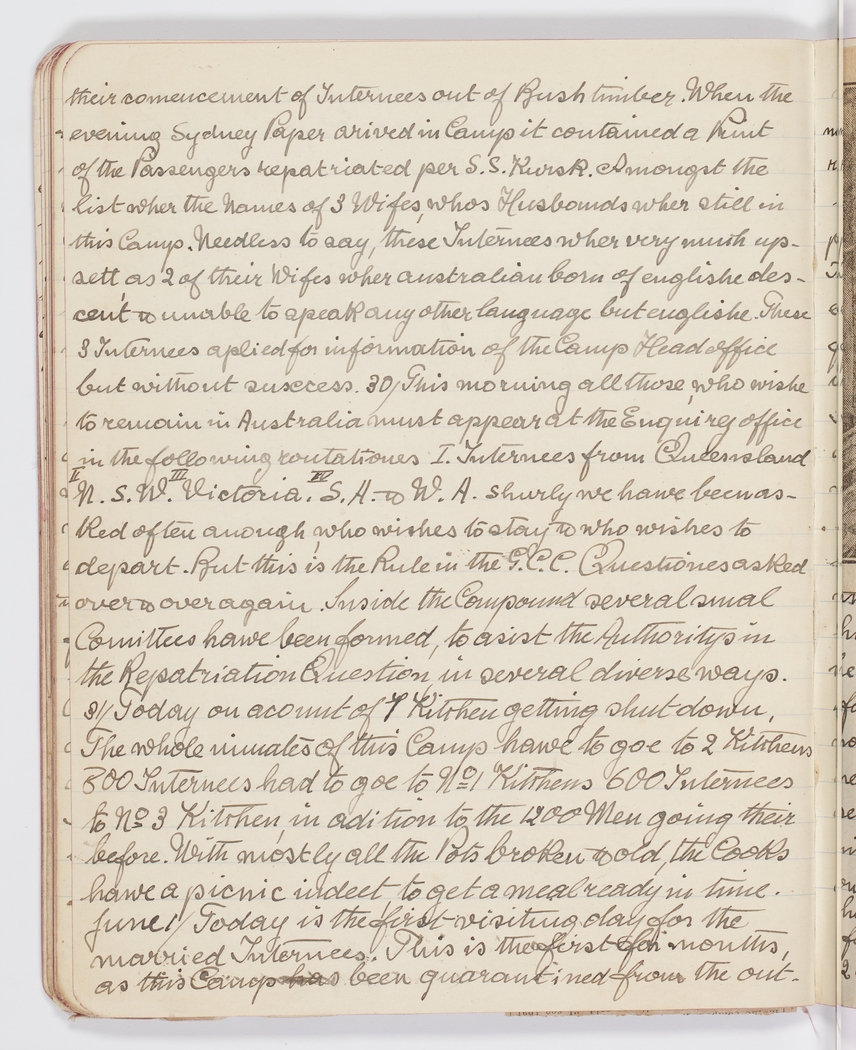 their comencement of Internees out of Bush timber. When the
evening Sydney Paper arived in Camp it contained a Print
of the Passengers repatriated per S.S. Kursk. Amongst the
list wher the Names of 3 Wifes, whos Husbands wher still in
this Camp. Needless to say, these Internees wher very much up-
sett as 2 of their Wifes wher australian born of englishe des-
cent & unable to speak any other language but englishe. These
3 Internees aplied for information of the Camp Head office
but without susccess. 30/ This morning all those, who wishe
to remain in Australia must appear at the Enquirey office
in the following routationes I. Internees from Queensland
II N. S. W. III Victoria. IV S. A. & W. A. shurly we hawe been as-
ked often anough, who wishes to stay & who wishes to
depart. But this is the Rule in the G.C.C. Questiones asked
over & over again. Inside the Compound several smal
Comittees hawe been formed, to asist the Authoritys in
the Repatriation Question in several diverse ways.
31/ Today on acount of 1 Kitchen getting shut down,
The whole inmates of this Camp hawe to goe to 2 Kitchens
800 Internees had to goe to No 1 Kitchens 600 Internees
to No 3 Kitchen, in adition to the 1200 Men going their
before. With mostly all the Pots broken & old, the Cooks
hawe a picnic indeet, to get a meal ready in time.
June 1/ Today is the first visiting day for the
married Internees. This is the first for months,
as this Camp has been quarantined from the out-